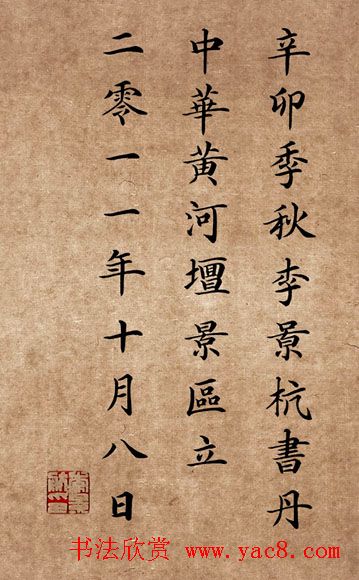 辛卯季秋李景杭書丹
中華黄河壇景區立
二零一一年十月八日
书法欣赏 www.yac8.com